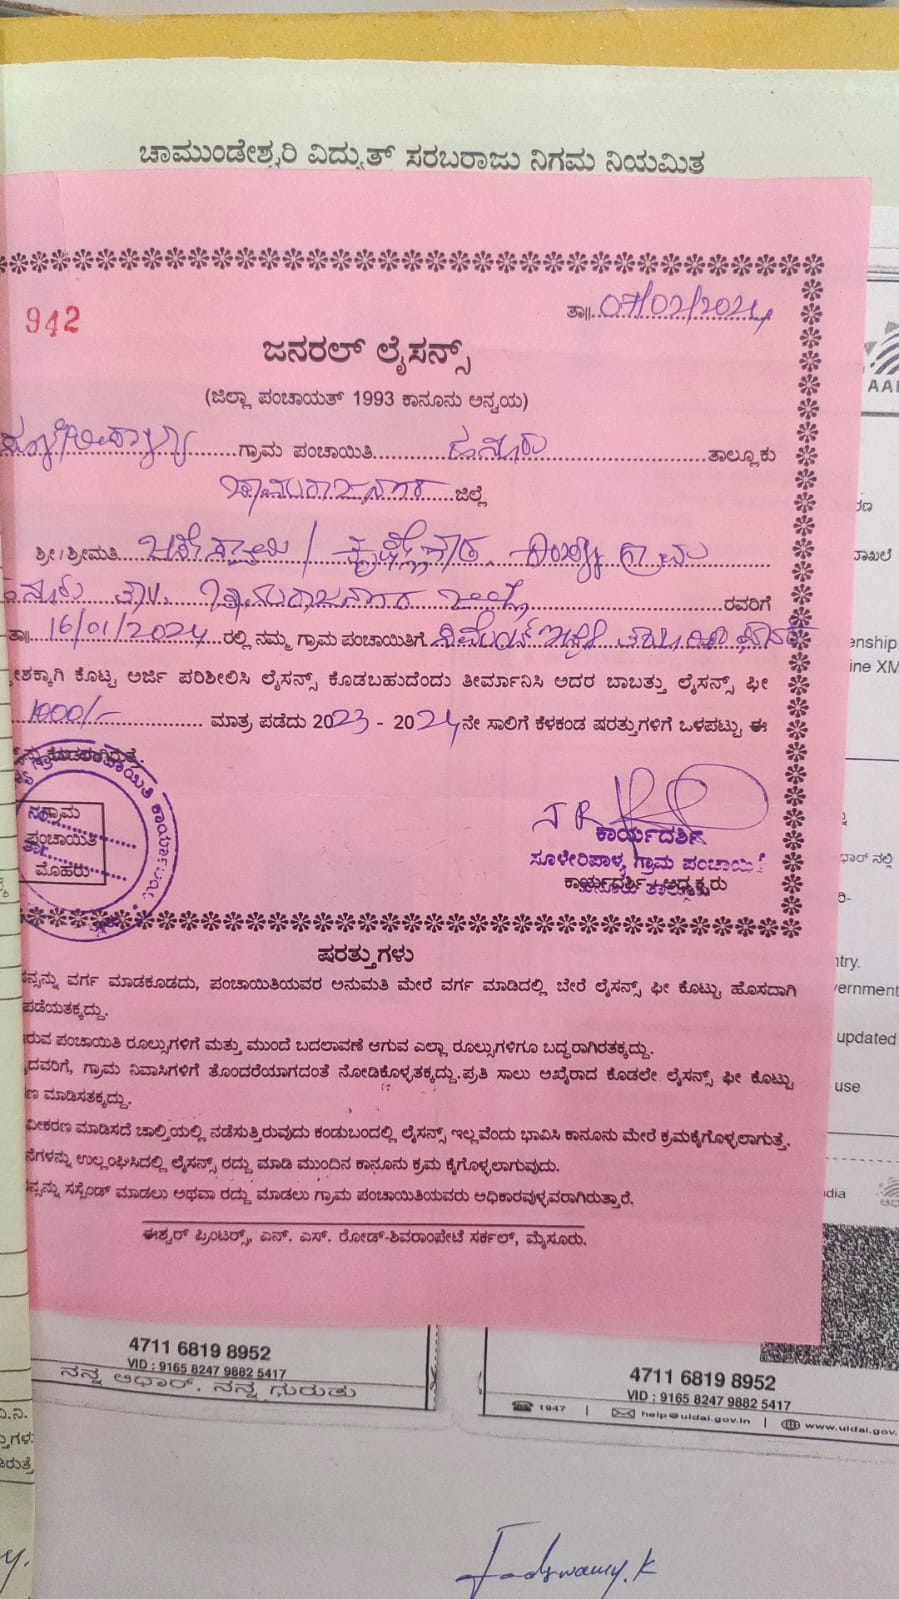 ಚಾಮುಂಡೇಶ್ವರಿ ವಿದ್ಯುತ್ ಸರಬರಾಜು ನಿಗಮ ನಿಯಮಿತ
942
ತಾ॥ 07/02/2024
ಜನರಲ್ ಲೈಸನ್ಸ್
(ಜಿಲ್ಲಾ ಪಂಚಾಯತ್ 1993 ಕಾನೂನು ಅನ್ವಯ)
ಗ್ರಾಮ ಪಂಚಾಯಿತಿ ಹನೂರು ತಾಲ್ಲೂಕು
ಚಾಮರಾಜನಗರ ಜಿಲ್ಲೆ
ಶ್ರೀ/ಶ್ರೀಮತಿ ಗ್ರಾಮ
ಹನೂರು ತಾ. ಚಾಮರಾಜನಗರ ಜಿಲ್ಲೆ ರವರಿಗೆ
ತಾ॥ 16/01/2024 ರಲ್ಲಿ ನಮ್ಮ ಗ್ರಾಮ ಪಂಚಾಯಿತಿಗೆ ಸಿಮೆಂಟ್ ಇಟ್ಟಿಗೆ
ಶಕ್ಕಾಗಿ ಕೊಟ್ಟ ಅರ್ಜಿ ಪರಿಶೀಲಿಸಿ ಲೈಸನ್ಸ್ ಕೊಡಬಹುದೆಂದು ತೀರ್ಮಾನಿಸಿ ಅದರ ಬಾಬತ್ತು ಲೈಸನ್ಸ್ ಫೀ
1000/- ಮಾತ್ರ ಪಡೆದು 2023 - 2024 ನೇ ಸಾಲಿಗೆ ಕೆಳಕಂಡ ಷರತ್ತುಗಳಿಗೆ ಒಳಪಟ್ಟು ಈ
ಕೊಡಲಾಗಿರುತ್ತೆ.
ಗ್ರಾಮ
ಪಂಚಾಯಿತಿ
ಮೊಹರು
ಕಾರ್ಯದರ್ಶಿ
ಸೂಳೇರಿಪಾಳ್ಯ ಗ್ರಾಮ ಪಂಚಾಯಿತಿ
ಕಾರ್ಯದರ್ಶಿ / ಅಧ್ಯಕ್ಷರು
ಷರತ್ತುಗಳು
ನ್ಸನ್ನು ವರ್ಗ ಮಾಡಕೂಡದು, ಪಂಚಾಯಿತಿಯವರ ಅನುಮತಿ ಮೇರೆ ವರ್ಗ ಮಾಡಿದಲ್ಲಿ ಬೇರೆ ಲೈಸನ್ಸ್ ಫೀ ಕೊಟ್ಟು ಹೊಸದಾಗಿ
ಪಡೆಯತಕ್ಕದ್ದು.
ರುವ ಪಂಚಾಯಿತಿ ರೂಲ್ಸುಗಳಿಗೆ ಮತ್ತು ಮುಂದೆ ಬದಲಾವಣೆ ಆಗುವ ಎಲ್ಲಾ ರೂಲ್ಸುಗಳಿಗೂ ಬದ್ಧರಾಗಿರತಕ್ಕದ್ದು.
ದವರಿಗೆ, ಗ್ರಾಮ ನಿವಾಸಿಗಳಿಗೆ ತೊಂದರೆಯಾಗದಂತೆ ನೋಡಿಕೊಳ್ಳತಕ್ಕದ್ದು.ಪ್ರತಿ ಸಾಲು ಅಖೈರಾದ ಕೊಡಲೇ ಲೈಸನ್ಸ್ ಫೀ ಕೊಟ್ಟು
ಣ ಮಾಡಿಸತಕ್ಕದ್ದು.
ವೀಕರಣ ಮಾಡಿಸದೆ ಚಾಲ್ತಿಯಲ್ಲಿ ನಡೆಸುತ್ತಿರುವುದು ಕಂಡುಬಂದಲ್ಲಿ ಲೈಸನ್ಸ್ ಇಲ್ಲವೆಂದು ಭಾವಿಸಿ ಕಾನೂನು ಮೇರೆ ಕ್ರಮಕೈಗೊಳ್ಳಲಾಗುತ್ತೆ.
ನೆಗಳನ್ನು ಉಲ್ಲಂಘಿಸಿದಲ್ಲಿ ಲೈಸನ್ಸ್ ರದ್ದು ಮಾಡಿ ಮುಂದಿನ ಕಾನೂನು ಕ್ರಮ ಕೈಗೊಳ್ಳಲಾಗುವುದು.
ನ್ಸನ್ನು ಸಸ್ಪೆಂಡ್ ಮಾಡಲು ಅಥವಾ ರದ್ದು ಮಾಡಲು ಗ್ರಾಮ ಪಂಚಾಯಿತಿಯವರು ಅಧಿಕಾರವುಳ್ಳವರಾಗಿರುತ್ತಾರೆ.
ಈಶ್ವರ್ ಪ್ರಿಂಟರ್ಸ್, ಎನ್. ಎಸ್. ರೋಡ್-ಶಿವರಾಂಪೇಟೆ ಸರ್ಕಲ್, ಮೈಸೂರು.
AA
ಾಖಲೆ
enship
ine XM
ಧಾರ್ ನಲ್ಲಿ
ntry.
vernment
updated
use
dia
4711 6819 8952
VID : 9165 8247 9882 5417
ನನ್ನ ಆಧಾರ್, ನನ್ನ ಗುರುತು
4711 6819 8952
VID : 9165 8247 9882 5417
1947 | help@uidai.gov.in | www.uidai.gov.